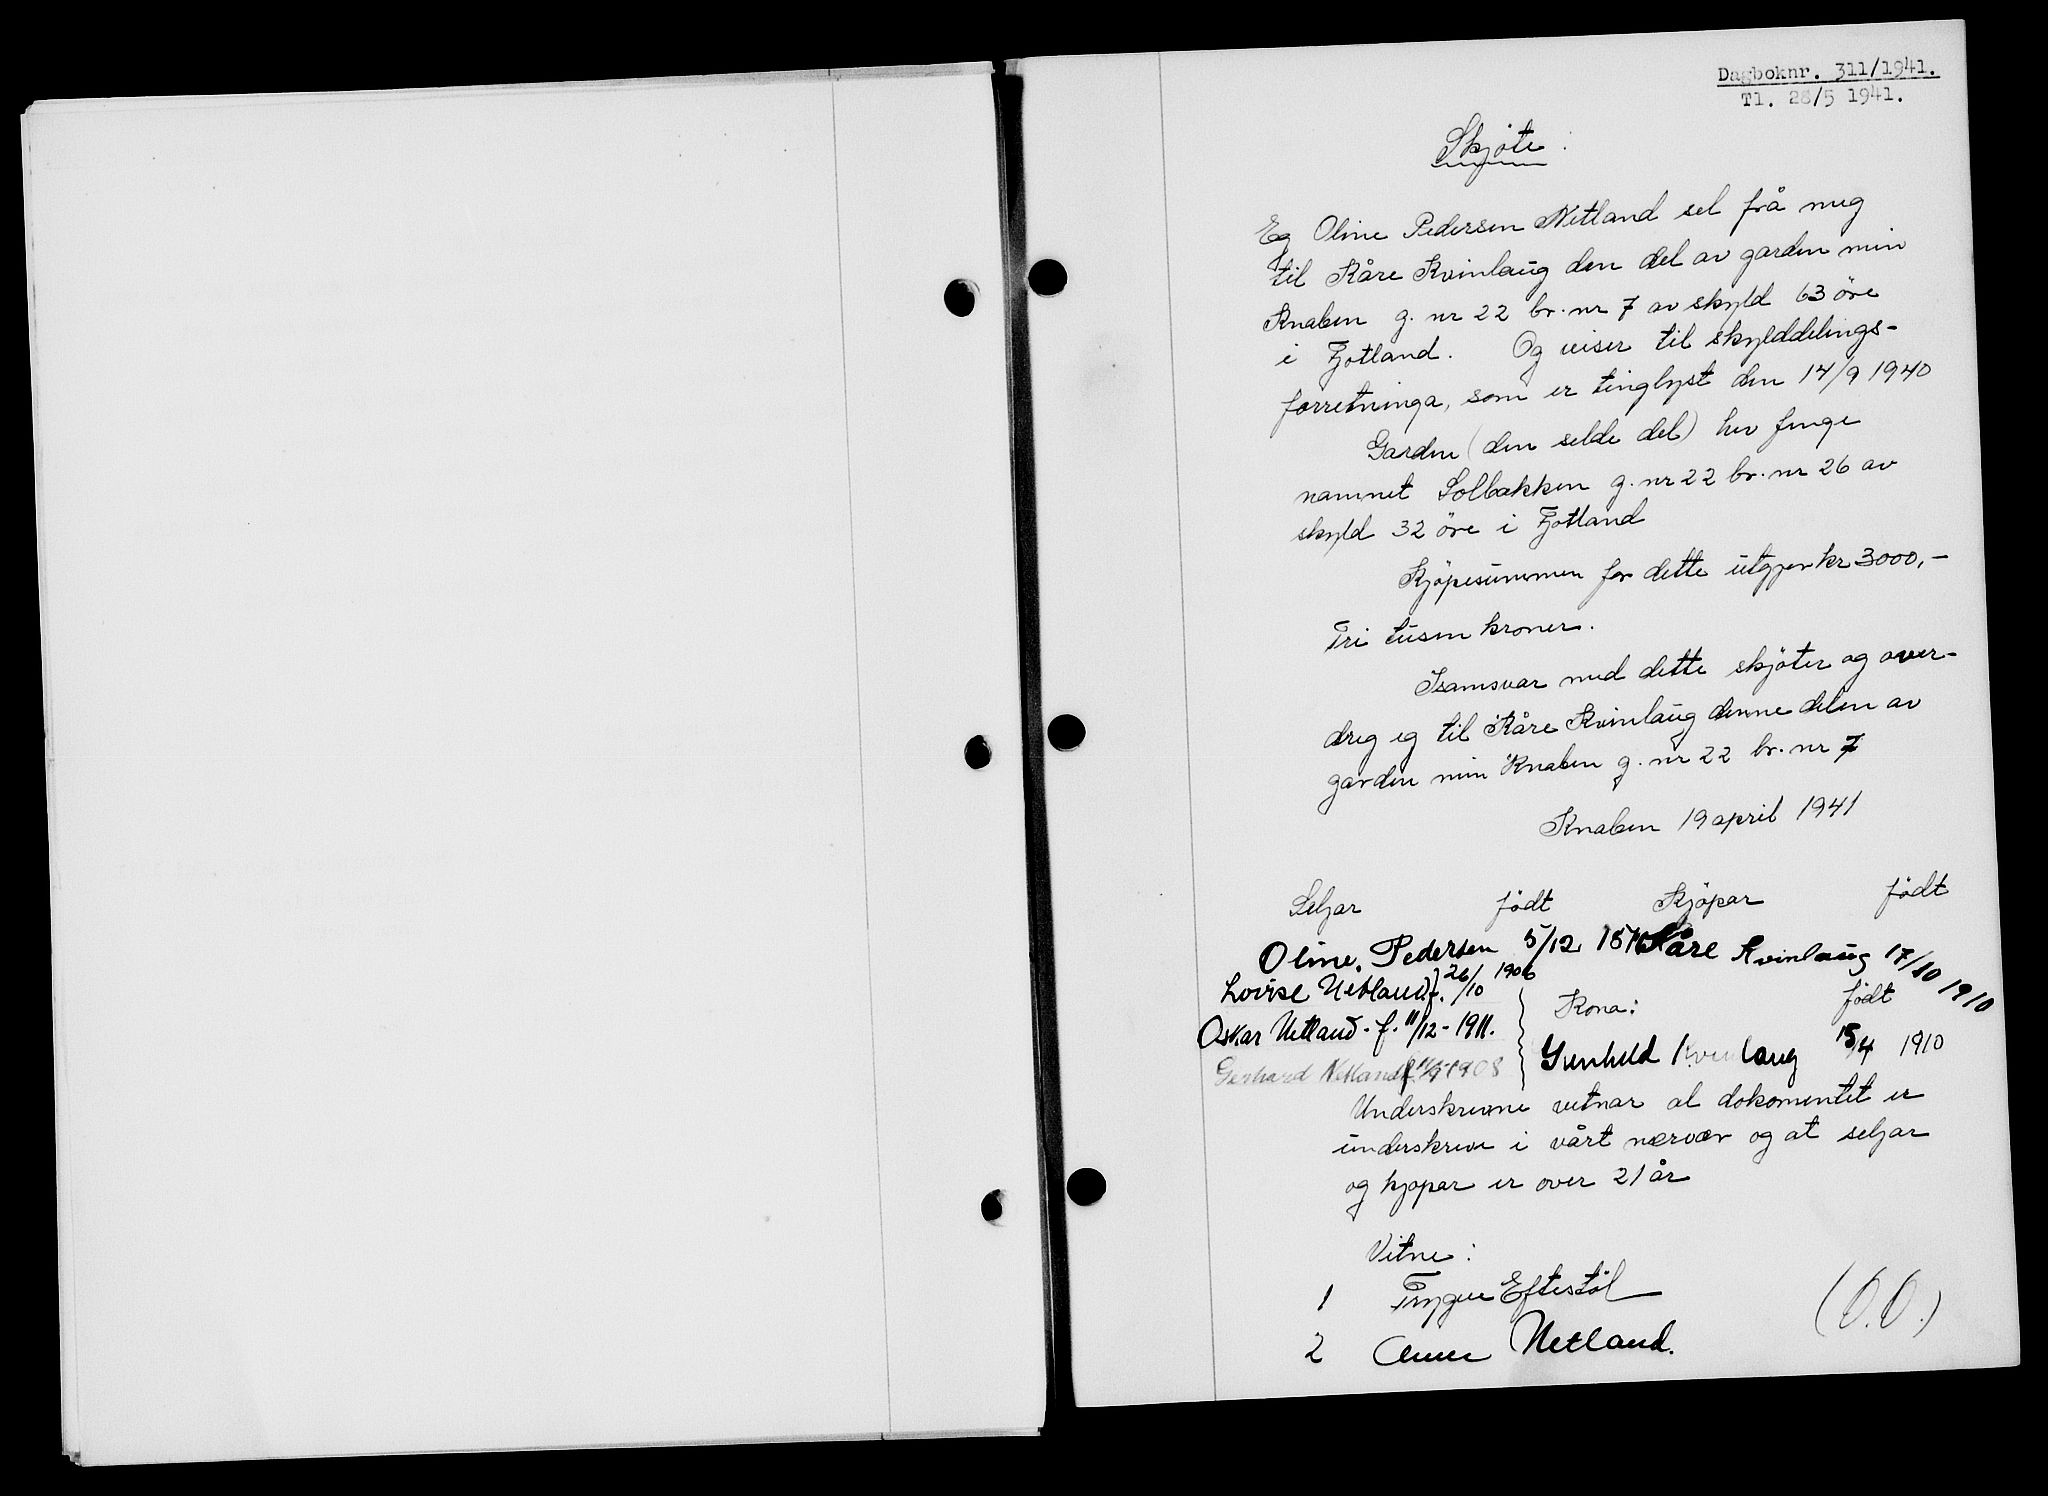 Dagboknr. 311/1941.
Tl. 28/5 1941.
Skjöte.
Eg Oline Pedersen Netland sel frå meg
til Kåre Kvinlaug den del av garden min
Knaben g. nr 22 br. nr 7 av skyld 63 öre
i Fjotland. Og viser til skylddelings-
forretninga, som er tinglyst den 14/9 1940
Garden (den selde del) hev fenge
namnet Solbakken g. nr 22 br. nr 26 av
skyld 32 öre i Fjotland
Kjöpesummen for dette utgjer kr 3000,-
Tri tusen kroner.
Isamsvar med dette skjöter og over-
dreg eg til Kåre Kvinlaug denne delen av
garden min Knaben g. nr 22 br. nr 7
Knaben 19 april 1941
Seljar födt Kjöpar födt
Oline. Pedersen 5/12 Kåre Kvinlaug 17/10 1910
Lovise Netland f. 26/10 1906
Kona: födt
Oskar Netland. f. 11/12 - 1911.
Gunhild Kvinlaug 15/4 1910
Gerhard Netland f. 1908
Underskrivne vitnar at dokomentet er
underskreve i vårt nærvær og at seljar
og kjopar er over 21 år
Vitne:
1 Trygve Eftestöl
2 Anne Netland.
(O.O.)